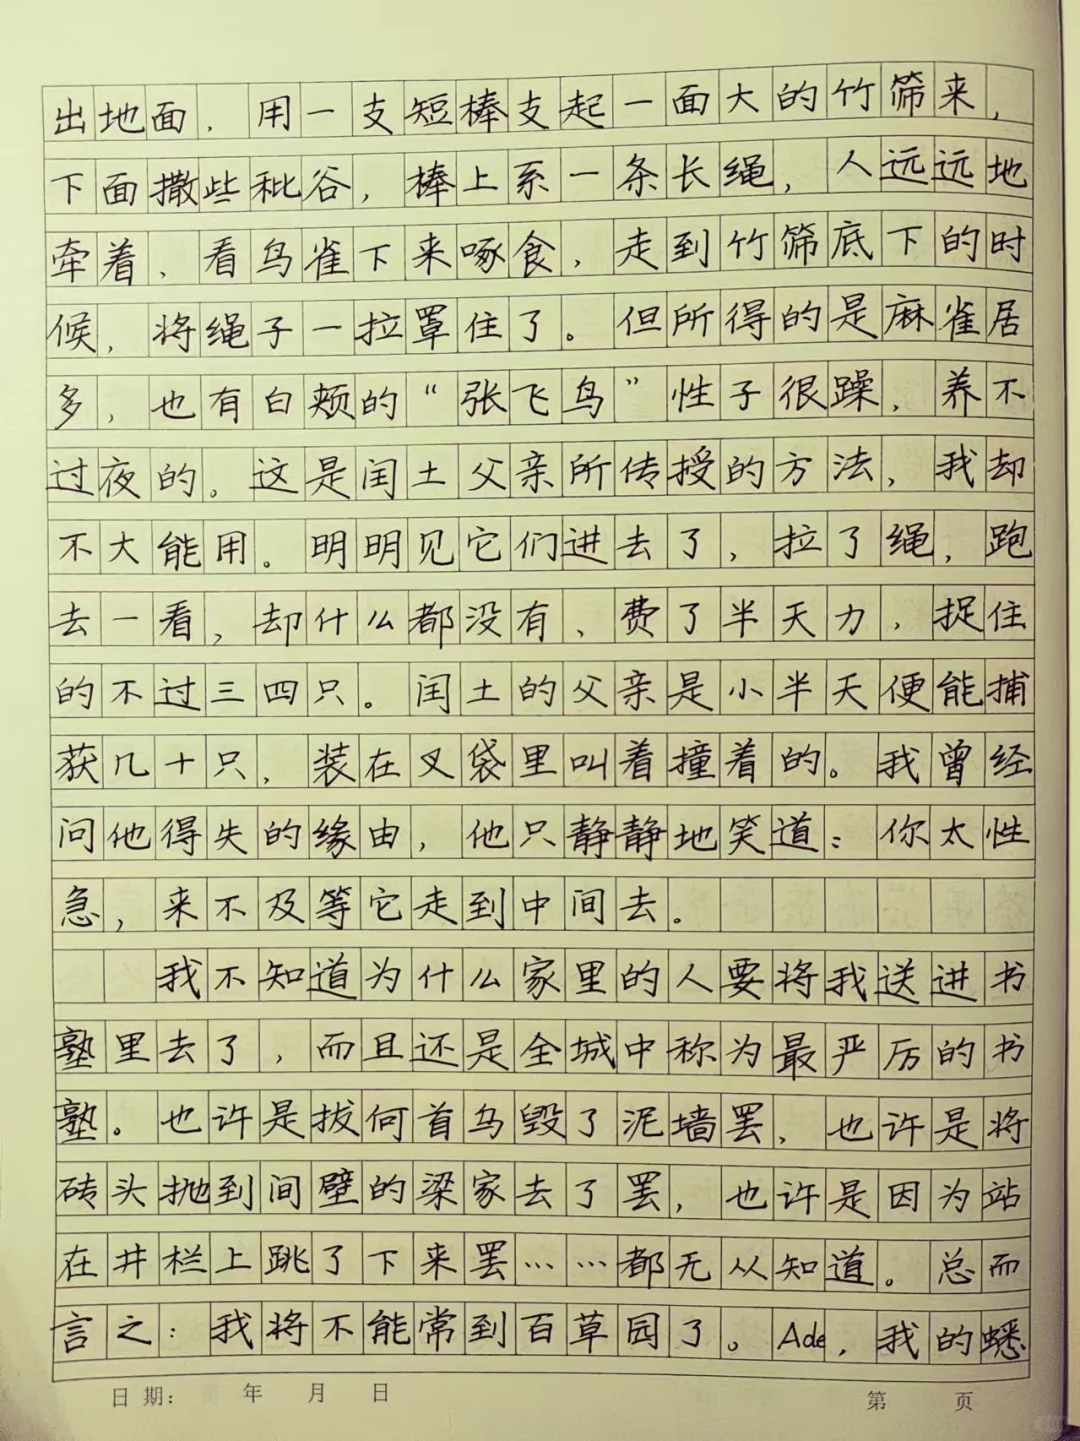 出地面，用一支短棒支起一面大的竹筛来，
下面撒些秕谷，棒上系一条长绳，人远远地
牵着、看鸟雀下来啄食，走到竹筛底下的时
候，将绳子一拉罩住了。但所得的是麻雀居
多，也有白颊的“张飞鸟”性子很躁，养不
过夜的。这是闰土父亲所传授的方法，我却
不大能用。明明见它们进去了，拉了绳，跑
去一看，却什么都没有、费了半天力，捉住
的不过三四只。闰土的父亲是小半天便能捕
获几十只，装在叉袋里叫着撞着的。我曾经
问他得失的缘由，他只静静地笑道：你太性
急，来不及等它走到中间去。
我不知道为什么家里的人要将我送进书
塾里去了，而且还是全城中称为最严厉的书
塾。也许是拔何首乌毁了泥墙罢，也许是将
砖头抛到间壁的梁家去了罢，也许是因为站
在井栏上跳了下来罢……都无从知道。总而
言之：我将不能常到百草园了。Ade，我的蟋
日期： 年 月 日 第 页